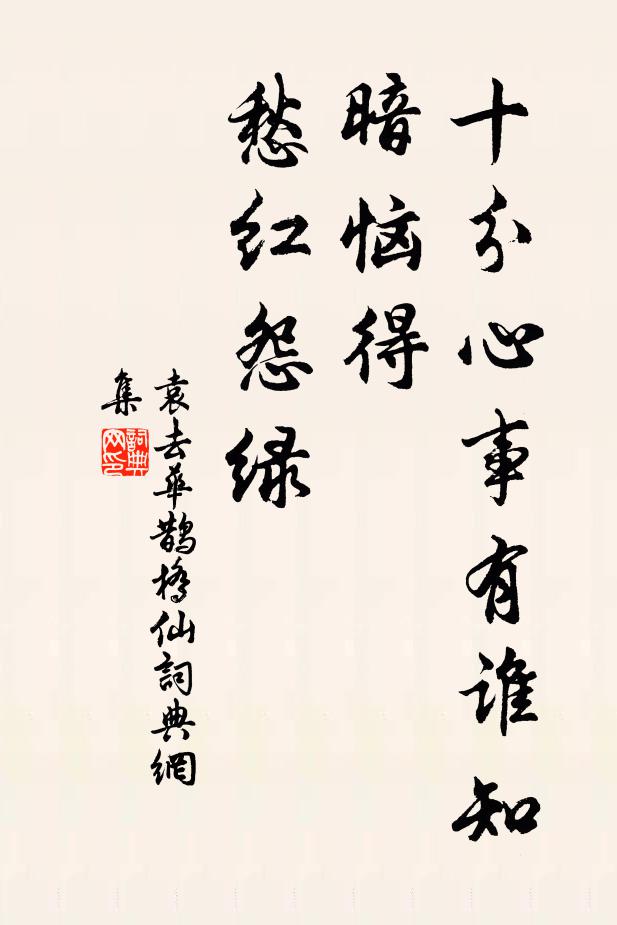 十分心事有谁知
暗恼得
愁红怨绿
袁去華鵲橋仙詞典網
集
詞典
网印